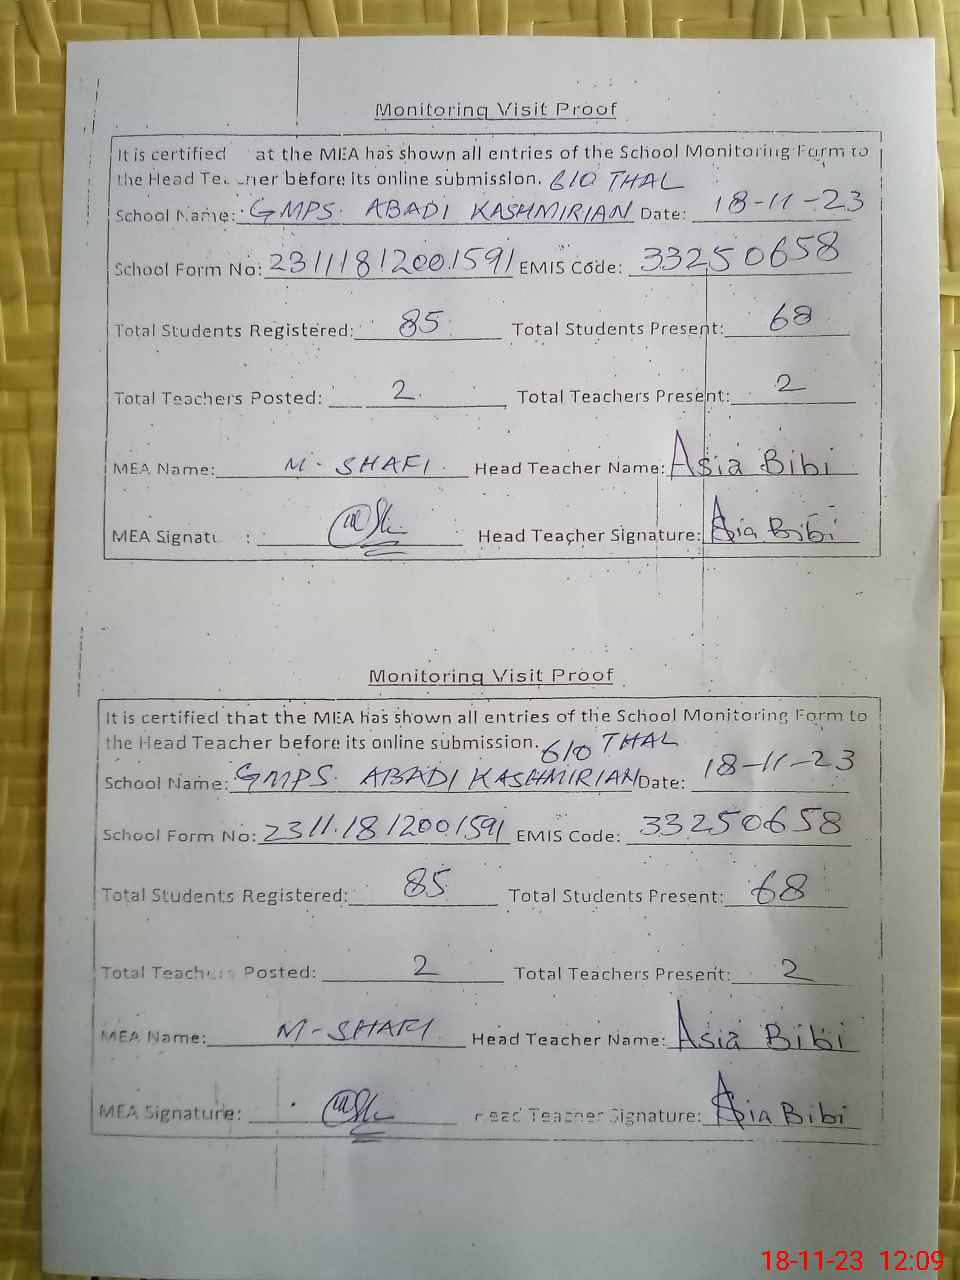 Monitoring Visit Proof
It is certified at the MEA has shown all entries of the School Monitoring Form to
the Head before its online submission. 610 THAL
School Name: GMPS. ABADI KASHMIRIAN Date: 18-11-23
School Form No: 23111812001591 EMIS Code: 33250658
Total Students Registered: 85 Total Students Present: 68
Total Teachers Posted: 2 Total Teachers Present: 2
MEA Name: M. SHAFI Head Teacher Name: Asia Bibi
MEA : Head Teacher Signature: Asia Bibi
Monitoring Visit Proof
It is certified that the MEA has shown all entries of the School Monitoring Form to
the Head Teacher before its online submission. 610 THAL
School Name: GMPS. ABADI KASHMIRIAN Date: 18-11-23
School Form No: 23111812001591 EMIS Code: 33250658
Total Students Registered: 85 Total Students Present: 68
Total Teachers Posted: 2 Total Teachers Present: 2
MEA Name: M-SHAFI Head Teacher Name: Asia Bibi
MEA Signature: Head Teacher Signature: Asia Bibi
18-11-23 12:09